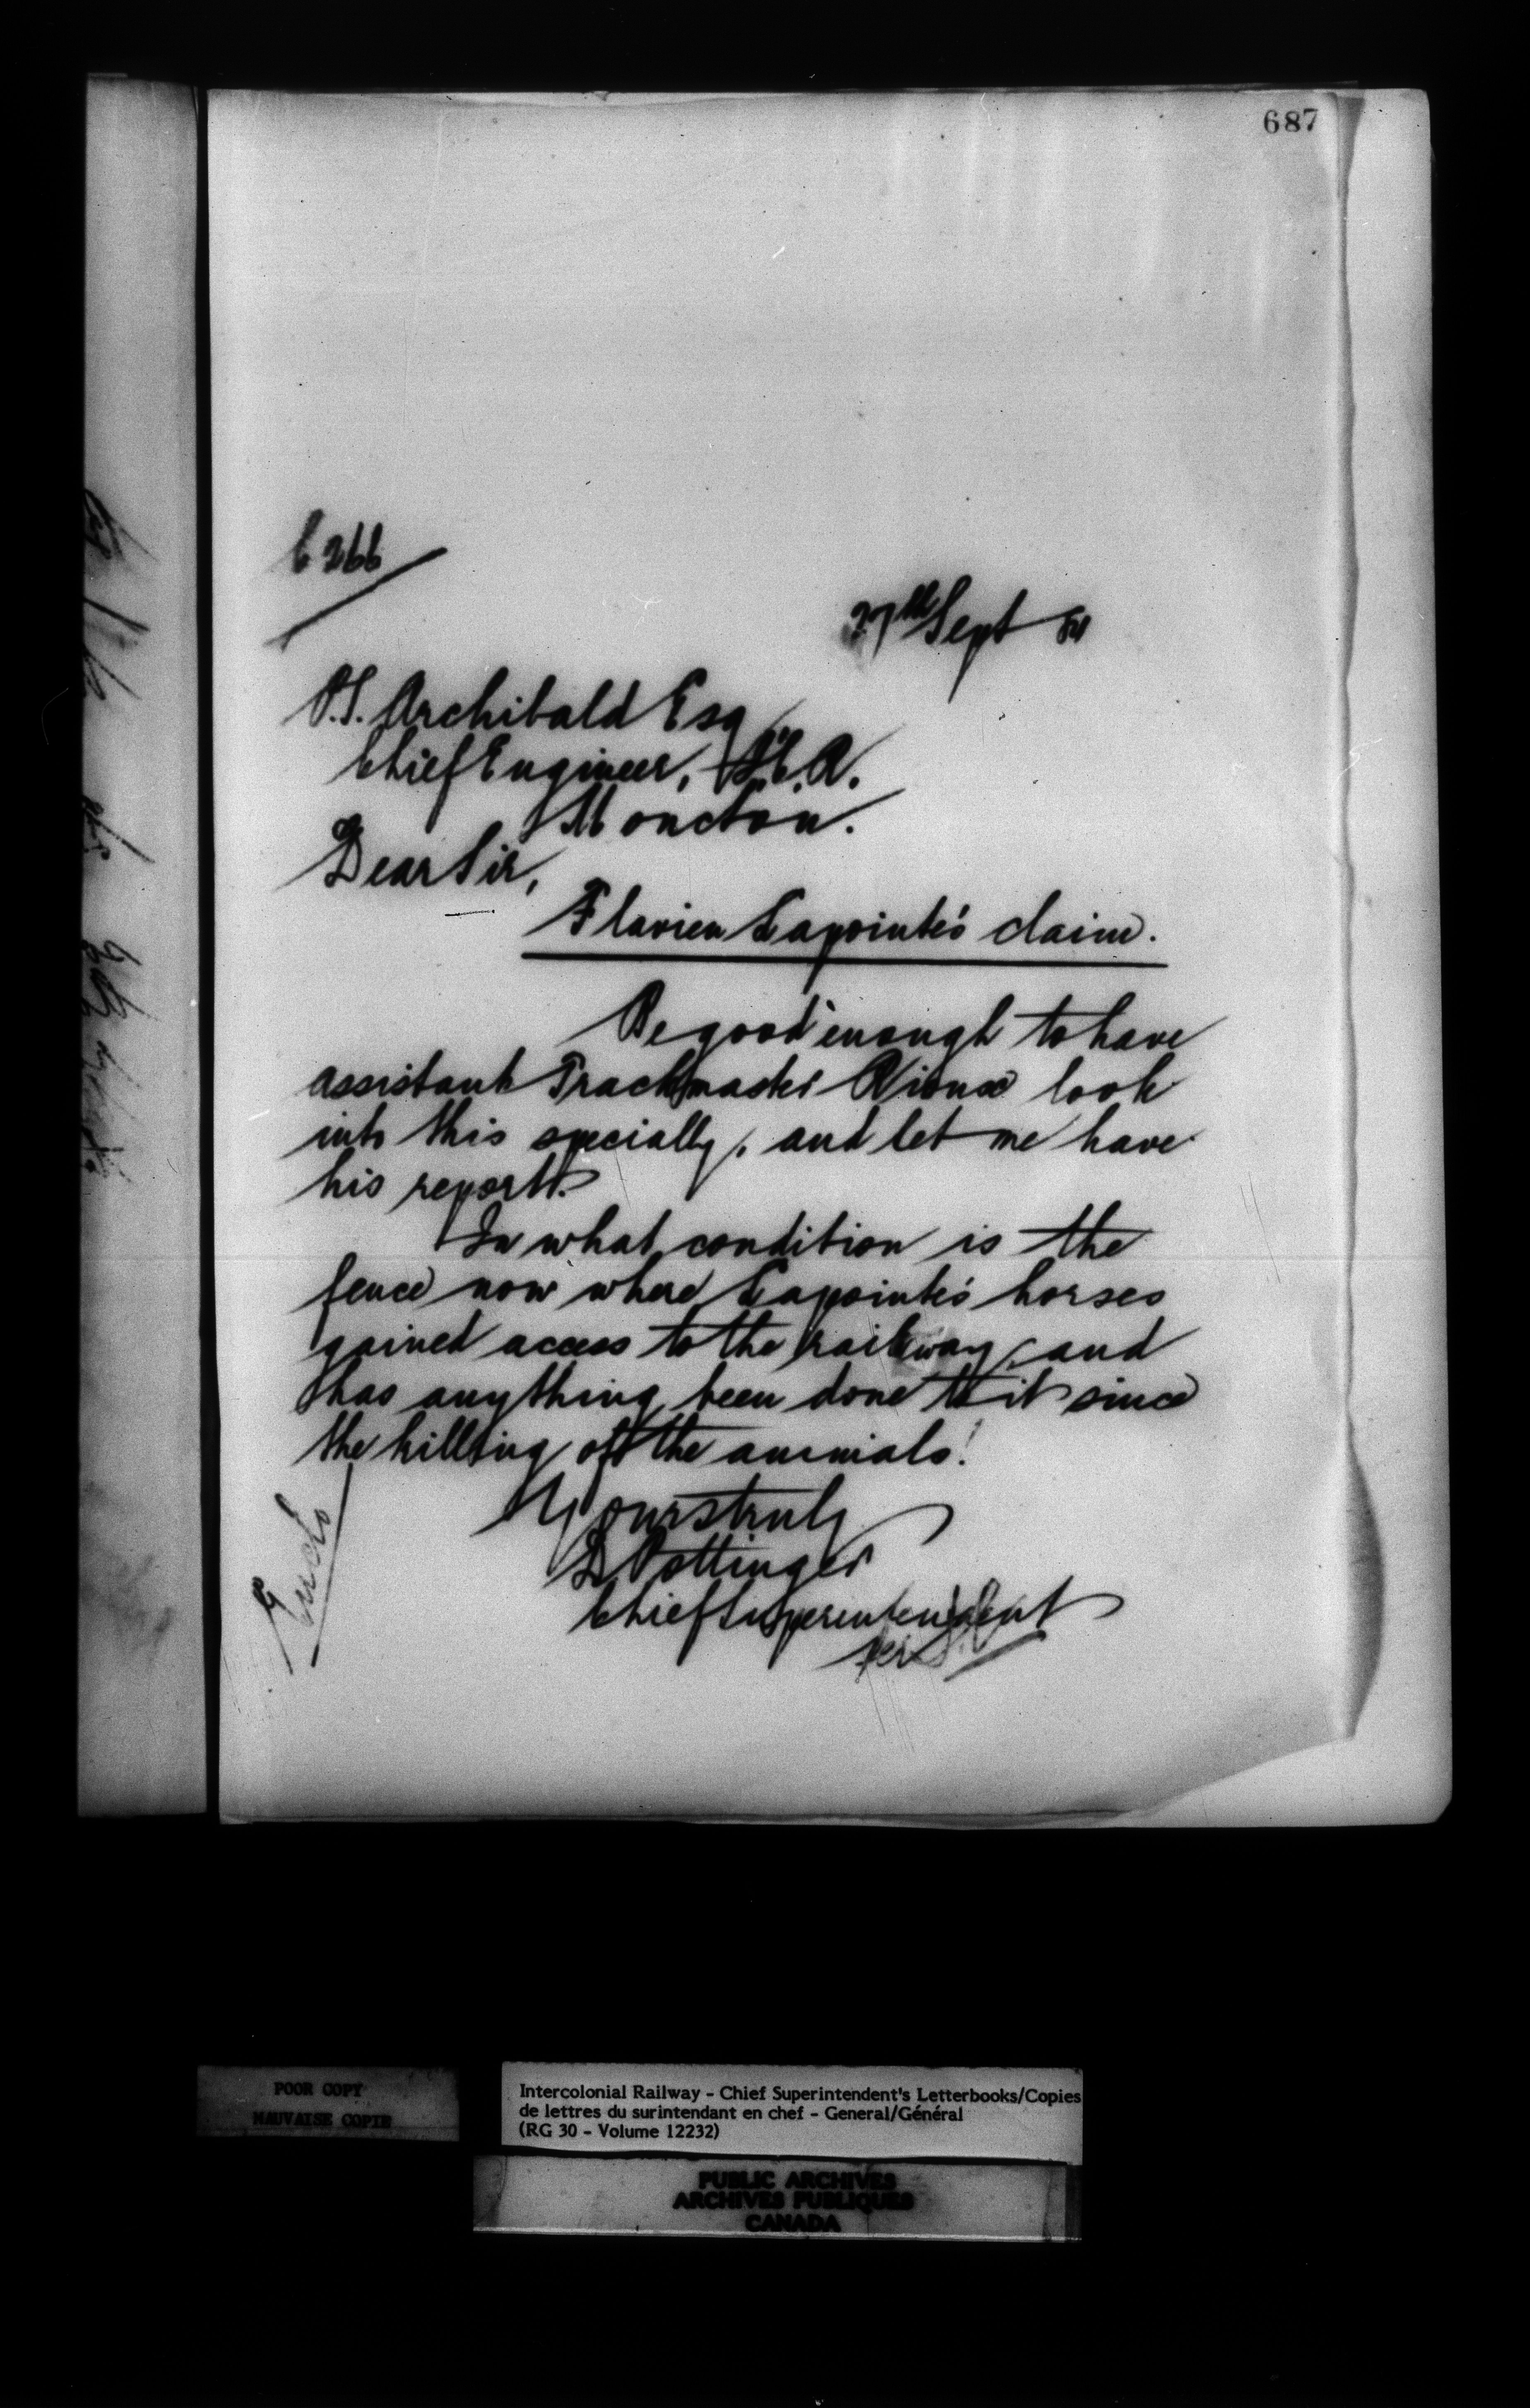 687
C 266
27th Sept 81
P.S. Archibald Esq
Chief Engineer, I.C.R.
Moncton.
Dear Sir,
Flavien Lapointe's claim.
Be good enough to have
assistant Trackmaster Vioux look
into this specially, and let me have
his report.
In what condition is the
fence now where Lapointe's horses
gained access to the railway, and
has anything been done to it since
the killing of the animals?
Yours truly
D Pottinger
Chief Superintendent
per
Enclo
POOR COPY
MAUVAISE COPIE
Intercolonial Railway - Chief Superintendent's Letterbooks/Copies
de lettres du surintendant en chef - General/Général
(RG 30 - Volume 12232)
PUBLIC ARCHIVES
ARCHIVES PUBLIQUES
CANADA